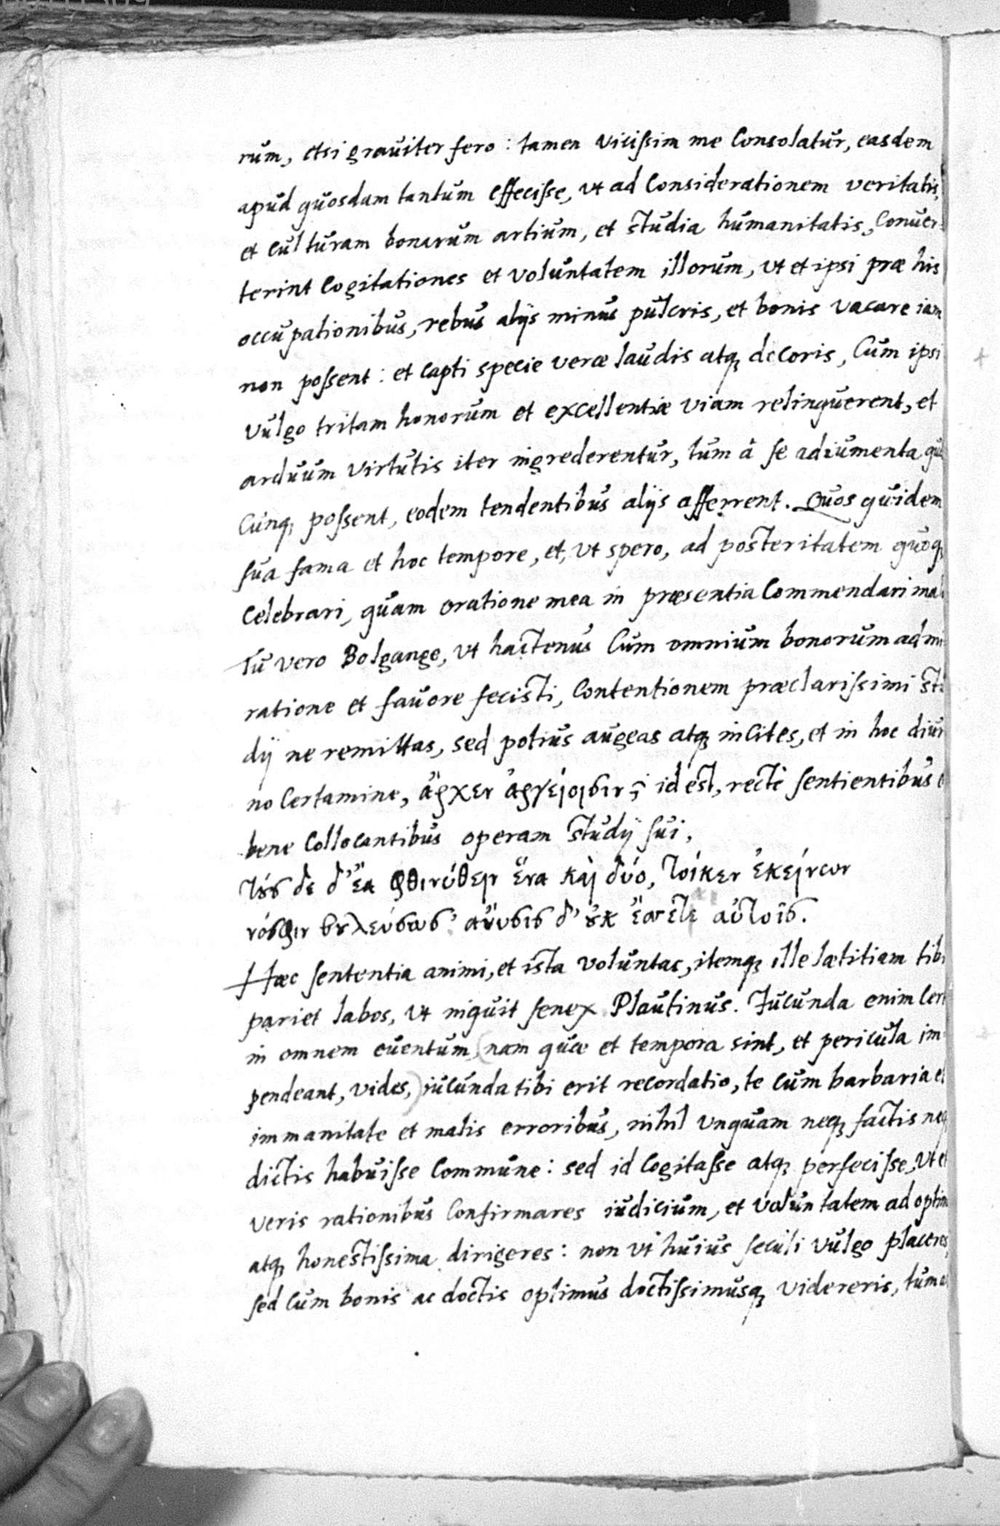 rum, etsi grauiter fero: tamen vicissim me Consolatur, easdem
apud quosdam tantum effecisse, vt ad Considerationem veritatis,
et culturam bonarum artium, et studia humanitatis, Conuer-
terint Cogitationes et voluntatem illorum, vt et ipsi præ his
occupationibus, rebus alijs minus pulcris, et bonis vacare iam
non possent: et capti specie veræ laudis atq; decoris, Cum ipsi
vulgo tritam honorum et excellentiæ viam relinquerent, et
arduum virtutis iter ingrederentur, tum à se adiumenta quæ
Cunq; possent, eodem tendentibus alijs afferrent. Quos quidem
sua fama et hoc tempore, et, vt spero, ad posteritatem quoq;
Celebrari, quam oratione mea in præsentia Commendari mal
Tu vero Bolgange, vt hactenus Cum omnium bonorum admi
ratione et fauore fecisti, Contentionem præclarissimi stu
dij ne remittas, sed potius augeas atq; incites, et in hoc diui
no Certamine, ἄρχεν ἀργείοισιν; id est, rectè sentientibus e
bene Collocantibus operam studij sui,
Τούς δε δ' ἔα φθινύθειν ἕνα καὶ δύο, τοίκεν ἐκείνων
νόσφιν βουλεύσωσ' ἄνυσις δ' οὐκ ἔσσεται αὐτοῖς.
Hæc sententia animi, et ista voluntas, itemq; ille lætitiam tibi
pariet labos, vt inquit senex Plautinus. Iucunda enim Cert
in omnem euentum, (nam quæ et tempora sint, et pericula im
pendeant, vides,) iucunda tibi erit recordatio, te Cum barbaria et
immanitate et malis erroribus, nihil vnquam neq; factis neq;
dictis habuisse Commune: sed id Cogitasse atq; perfecisse, vt et
veris rationibus Confirmares iudicium, et voluntatem ad optim
atq; honestissima dirigeres: non vt huius seculi vulgo placeres,
sed Cum bonis ac doctis optimus doctissimusq; videreris, tum a